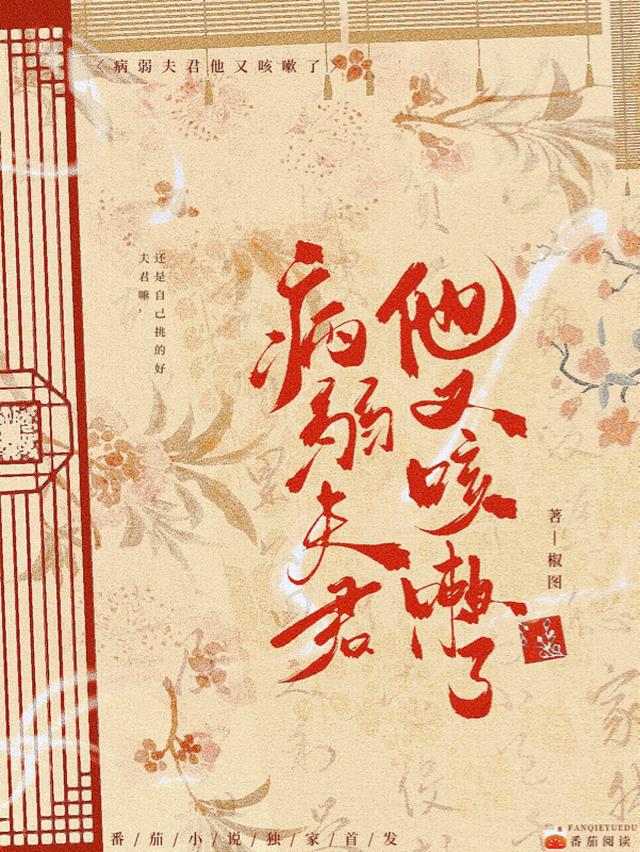 〈病弱夫君他又咳嗽了〉
还是自己挑的好
夫君嘛，
病弱夫君
他又咳嗽了
著—椒图
番/茄/小/说/独/家/首/发
FANQIEYUEDU
番茄阅读